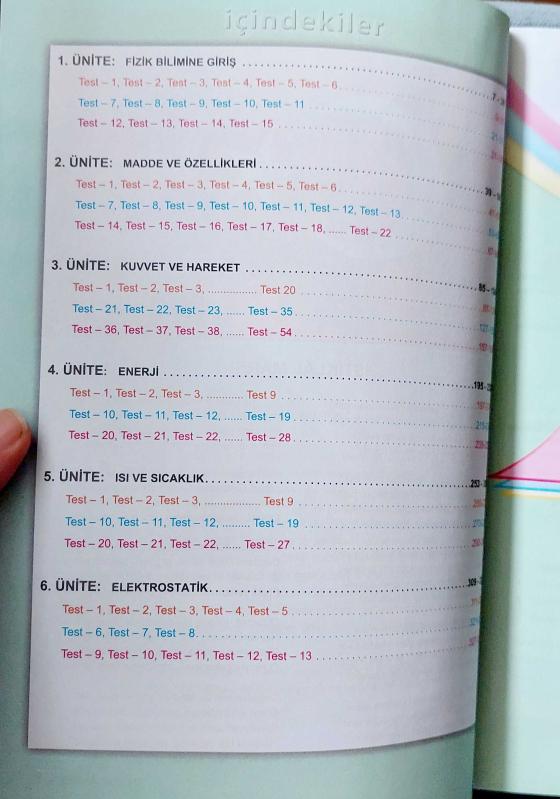 içindekiler
1. ÜNİTE: FİZİK BİLİMİNE GİRİŞ
Test – 1, Test – 2, Test – 3, Test – 4, Test – 5, Test – 6
Test – 7, Test – 8, Test – 9, Test – 10, Test – 11
Test – 12, Test – 13, Test – 14, Test – 15
2. ÜNİTE: MADDE VE ÖZELLİKLERİ
Test – 1, Test – 2, Test – 3, Test – 4, Test – 5, Test – 6
Test – 7, Test – 8, Test – 9, Test – 10, Test – 11, Test – 12, Test – 13
Test – 14, Test – 15, Test – 16, Test – 17, Test – 18, ...... Test – 22
3. ÜNİTE: KUVVET VE HAREKET
Test – 1, Test – 2, Test – 3, ................ Test 20
Test – 21, Test – 22, Test – 23, ...... Test – 35
Test – 36, Test – 37, Test – 38, ...... Test – 54
4. ÜNİTE: ENERJİ
Test – 1, Test – 2, Test – 3, ............ Test 9
Test – 10, Test – 11, Test – 12, ...... Test – 19
Test – 20, Test – 21, Test – 22, ...... Test – 28
5. ÜNİTE: ISI VE SICAKLIK
Test – 1, Test – 2, Test – 3, .................. Test 9
Test – 10, Test – 11, Test – 12, ......... Test – 19
Test – 20, Test – 21, Test – 22, ...... Test – 27
6. ÜNİTE: ELEKTROSTATİK
Test – 1, Test – 2, Test – 3, Test – 4, Test – 5
Test – 6, Test – 7, Test – 8
Test – 9, Test – 10, Test – 11, Test – 12, Test – 13